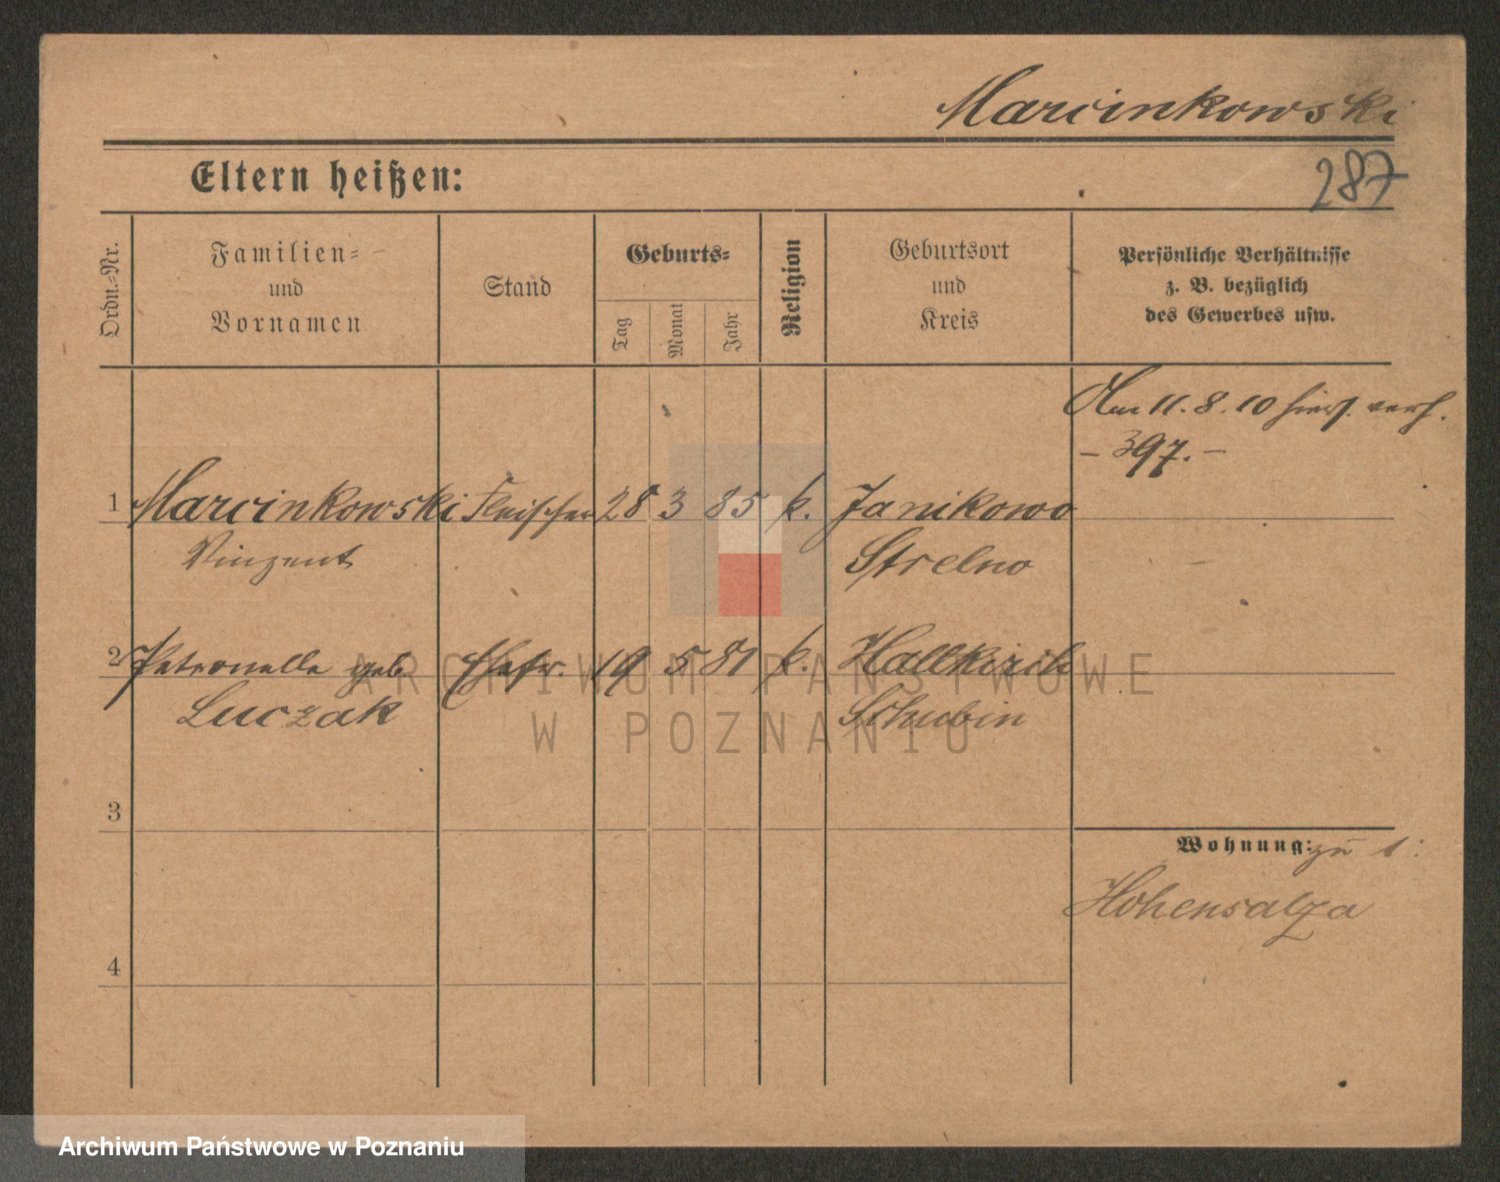 Marcinkowski
Eltern heißen:
287
Ordn.-Nr.
Familien-
und
Vornamen
Stand
Geburts-
Tag
Monat
Jahr
Religion
Geburtsort
und
Kreis
Persönliche Verhältnisse
z. B. bezüglich
des Gewerbes usw.
Am 11.8.10 hiers. verh.
- 397. -
1 Marcinkowski Fleischer 28 3 85 k. Janikowo
Vinzent Strelno
2 Petronella geb. Ehefr. 19 5 81 k. Hallkirch
Luczak Schubin
3
Wohnung: zu 1:
Hohensalza
4
ARCHIWUM PAŃSTWOWE
W POZNANIU
Archiwum Państwowe w Poznaniu